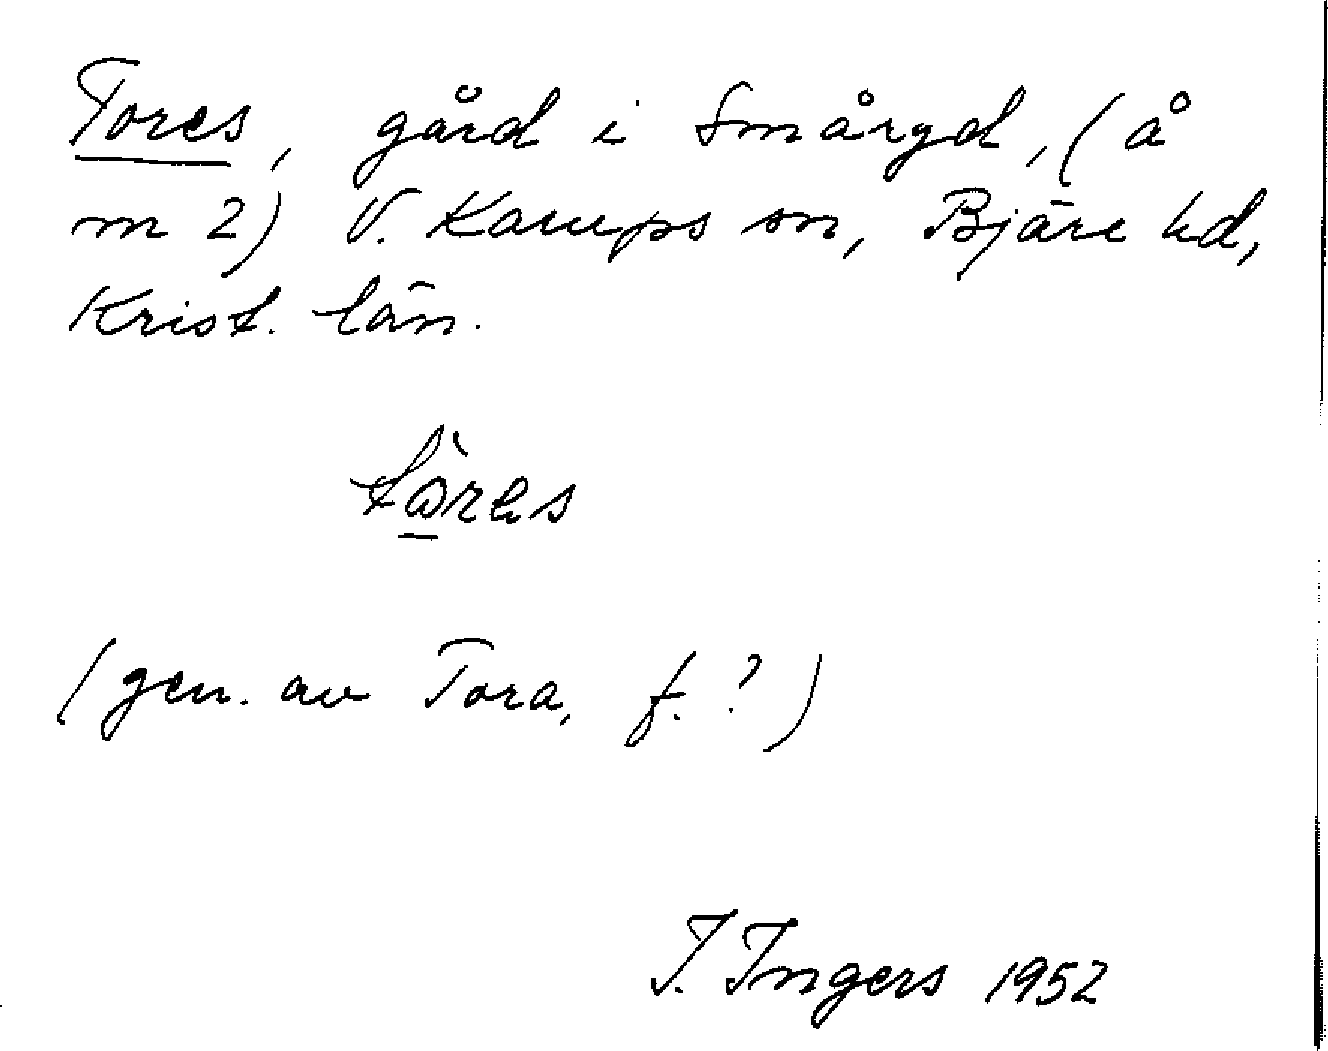 Tores, gård i Småryd, (å
m 2) V. Karups sn, Bjäre hd,
Krist. län.
(gen. av Tora, f.?)
I. Ingers 1952